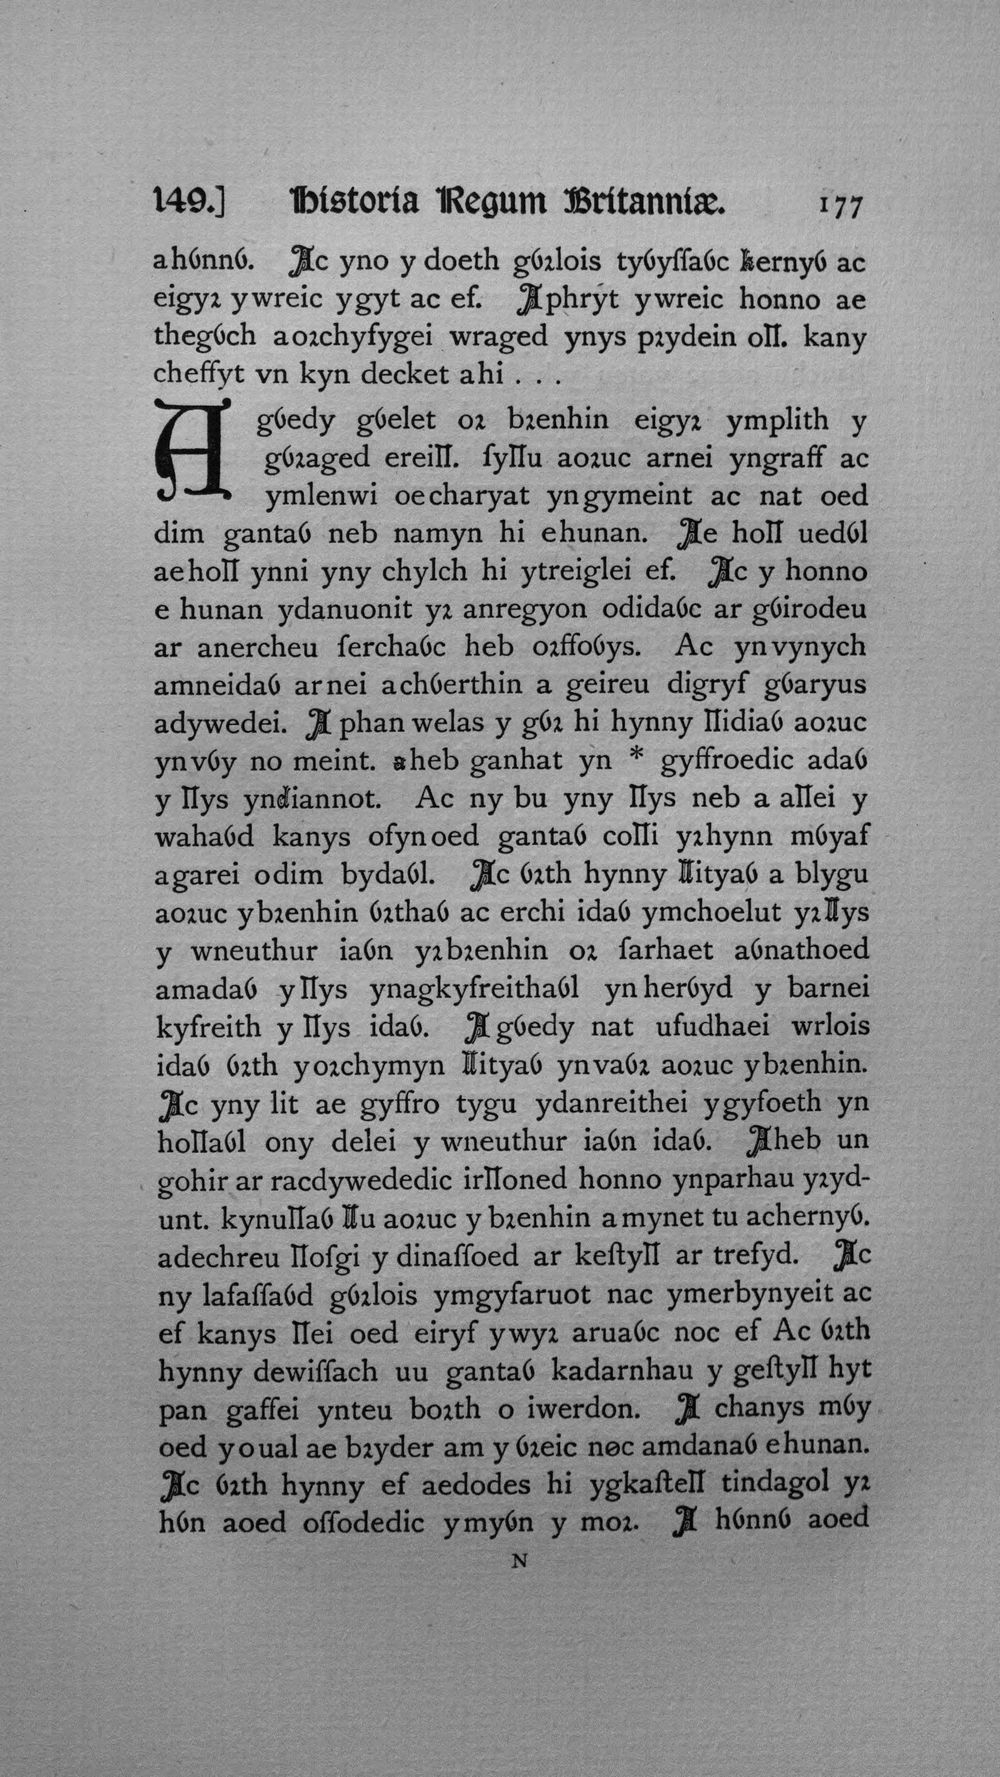 149.] Historia Regum Britanniæ. 177
ahỽnnỽ. Ac yno y doeth gỽꝛlois tyỽyſſaỽc kernyỽ ac
eigyꝛ ywreic ygyt ac ef. Aphryt ywreic honno ae
thegỽch aoꝛchyfygei wraged ynys pꝛydein oỻ. kany
cheffyt vn kyn decket ahi . . .
Agỽedy gỽelet oꝛ bꝛenhin eigyꝛ ymplith y
gỽꝛaged ereiỻ. ſyỻu aoꝛuc arnei yngraff ac
ymlenwi oecharyat yngymeint ac nat oed
dim gantaỽ neb namyn hi ehunan. Ae hoỻ uedỽl
aehoỻ ynni yny chylch hi ytreiglei ef. Ac y honno
e hunan ydanuonit yꝛ anregyon odidaỽc ar gỽirodeu
ar anercheu ſerchaỽc heb oꝛffoỽys. Ac ynvynych
amneidaỽ arnei achỽerthin a geireu digryf gỽaryus
adywedei. A phan welas y gỽꝛ hi hynny ỻidiaỽ aoꝛuc
ynvỽy no meint. aheb ganhat yn * gyffroedic adaỽ
y ỻys yndiannot. Ac ny bu yny ỻys neb a aỻei y
wahaỽd kanys ofynoed gantaỽ coỻi yꝛhynn mỽyaf
agarei odim bydaỽl. Ac ỽꝛth hynny ỻityaỽ a blygu
aoꝛuc ybꝛenhin ỽꝛthaỽ ac erchi idaỽ ymchoelut yꝛỻys
y wneuthur iaỽn yꝛbꝛenhin oꝛ ſarhaet aỽnathoed
amadaỽ yỻys ynagkyfreithaỽl ynherỽyd y barnei
kyfreith y ỻys idaỽ. Agỽedy nat ufudhaei wrlois
idaỽ ỽꝛth yoꝛchymyn ỻityaỽ ynvaỽꝛ aoꝛuc ybꝛenhin.
Ac yny lit ae gyffro tygu ydanreithei ygyfoeth yn
hoỻaỽl ony delei y wneuthur iaỽn idaỽ. Aheb un
gohir ar racdywededic irỻoned honno ynparhau yꝛyd-
unt. kynuỻaỽ ỻu aoꝛuc y bꝛenhin amynet tu achernyỽ.
adechreu ỻoſgi y dinaſſoed ar keſtyỻ ar trefyd. Ac
ny lafaſſaỽd gỽꝛlois ymgyfaruot nac ymerbynyeit ac
ef kanys ỻei oed eiryf ywyꝛ aruaỽc noc ef Ac ỽꝛth
hynny dewiſſach uu gantaỽ kadarnhau y geſtyỻ hyt
pan gaffei ynteu boꝛth o iwerdon. A chanys mỽy
oed youal ae bꝛyder am y ỽꝛeic noc amdanaỽ ehunan.
Ac ỽꝛth hynny ef aedodes hi ygkaſteỻ tindagol yꝛ
hỽn aoed oſſodedic ymyỽn y moꝛ. A hỽnnỽ aoed
N